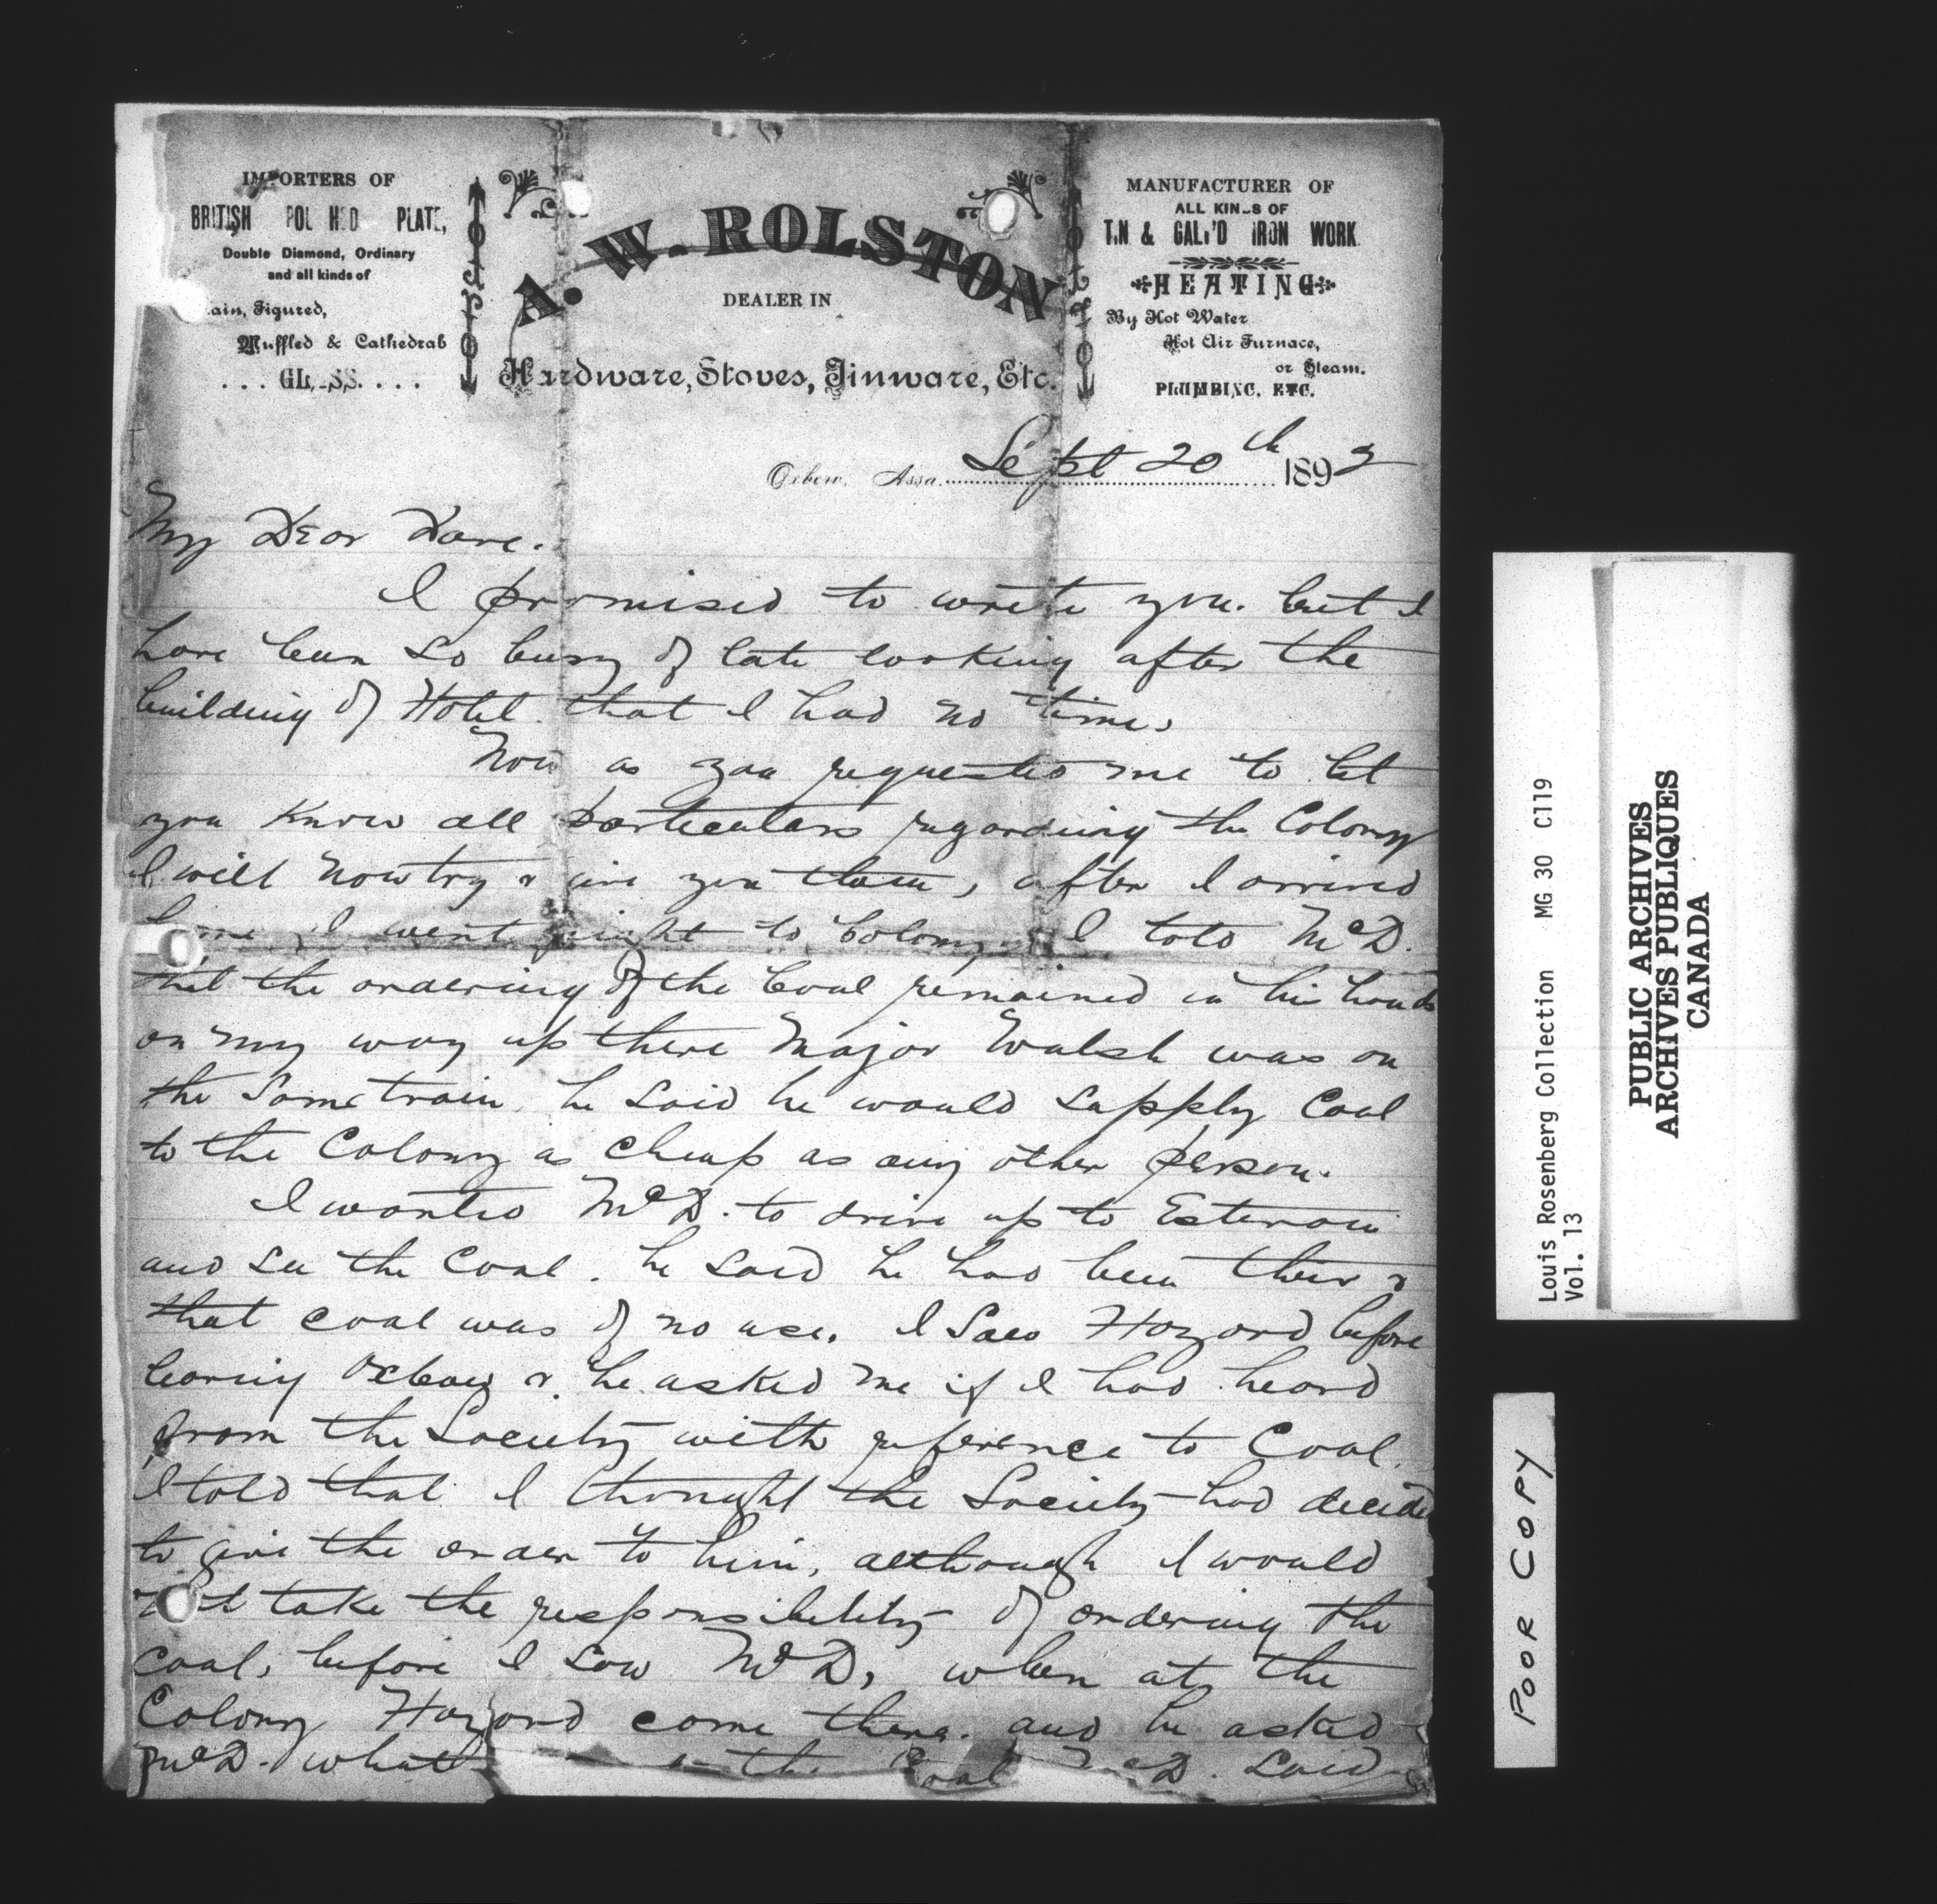 IMPORTERS OF
BRITISH POLISHED PLATE,
Double Diamond, Ordinary
and all kinds of
ain, Figured,
Muffled & Cathedral
... GLASS....
A. W. ROLSTON
DEALER IN
Hardware, Stoves, Tinware, Etc.
MANUFACTURER OF
ALL KINDS OF
TIN & GALV'D IRON WORK
HEATING
By Hot Water
Hot Air Furnace,
or Steam.
PLUMBING, ETC.
Oxbow, Assa. Sept 20th 1892
My Dear Dave.
I promised to write you. but I
have been so busy of late looking after the
building of Hotel. that I had no time.
Now as you requested me to let
you know all particulars regarding the Colony
I will now try & give you them, after I arrived
home I went right to Colony I told McD.
that the ordering of the Coal remained in his hands
on my way up there Major Walsh was on
the same train. he said he would supply Coal
to the Colony as cheap as any other person.
I wanted McD. to drive up to Estevan
and see the Coal. he said he had been their &
that coal was of no use. I saw Hazard before
leaving Oxbow & he asked me if I had heard
from the Society with reference to Coal.
I told that I thought the Society had decided
to give the order to him, although I would
not take the responsibility of ordering the
coal, before I saw McD, when at the
Colony Hazard come there. and he asked
McD. what the Coal McD. said
Louis Rosenberg Collection MG 30 C119
Vol. 13
PUBLIC ARCHIVES
ARCHIVES PUBLIQUES
CANADA
POOR COPY